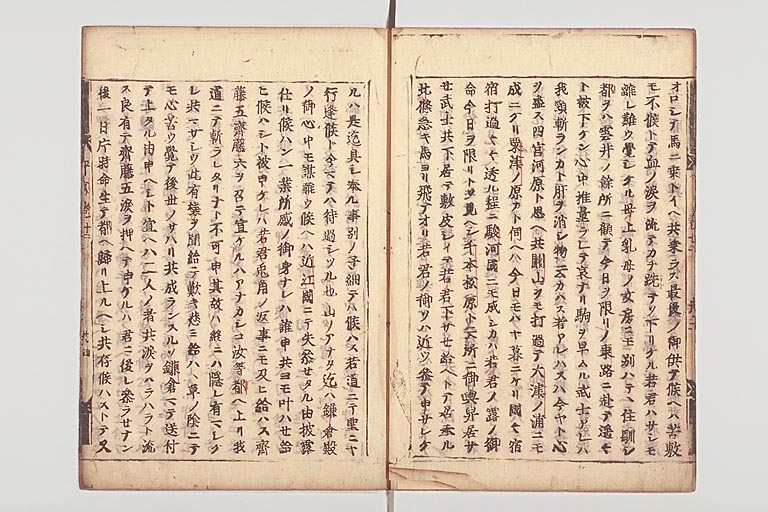 オロシテ馬ニ乗トイヘ共乗ラス最後ノ御供テ候ヘハ苦敷
モ不候トテ血ノ涙ヲ流テカチ跣テソ下リケル若君ハサシモ
離レ難ウ覚シケル母上乳母ノ女房ニモ別ハテヽ住馴シ
都ヲハ雲井ノ余所ニ顧テ今日ヲ限リノ東路ニ赴テ遥々
ト被下ケン心中推量ラレテ哀ナリ駒ヲ早ムル武士アレハ
我頸斬ランカト肝ヲ消シ物云カハス者アレハスハ今ヤト心
ヲ尽ス四宮河原ト思ヘ共関山ヲモ打過テ大津ノ浦ニモ
成ニケリ粟津ノ原カト伺ヘハ今日モハヤ暮ニケリ國々宿
宿打過々々透ル程ニ駿河國ニモ成シカハ若君ノ露ノ御
命今日ヲ限リトソ見ヘシ千本松原ト云所ニ御輿舁居サ
セ武士共下居テ敷皮シイテ若君下サセ給ヘトテ居奉ル
北條急キ馬ヨリ飛テオリ若君ノ御ソハ近ウ参テ申サレケ
ルハ是迄具シ奉ル事別ノ子細テハ候ハス若道ニテ聖ニヤ
行逢候ト今マテハ待過シツル也山ノアナタ迄ハ鎌倉殿
ノ御心中モ謀難ウ候ヘハ近江國ニテ失参セタル由披露
仕リ候ハン一業所感ノ御身ナレハ誰申共ヨモ叶ハセ給
ヒ候ハシト被申ケレハ若君兎角ノ返事ニモ及ヒ給ハス齊
藤五齊藤六ヲ召テ宣ケルハアナカシコ汝等都ヘ上リ我
道ニテ斬ラレタリナト不可申其故ハ終ニハ隠レ有マシケ
レ共マサシウ此有様ヲ聞給テ歎キ悲ミ給ハヽ草ノ陰ニテ
モ心苦ウ覚テ後世ノサハリ共成ランスルソ鎌倉マテ送付
テ上タル由申ヘシト宣ヘハ二人ノ者共涙ヲハラハラト流
ス良有テ齊藤五涙ヲ押ヘテ申ケルハ君ニ後レ参ラセナン
後一日片時命生テ都ヘ歸リ上ルヘシ共存候ハストテ又